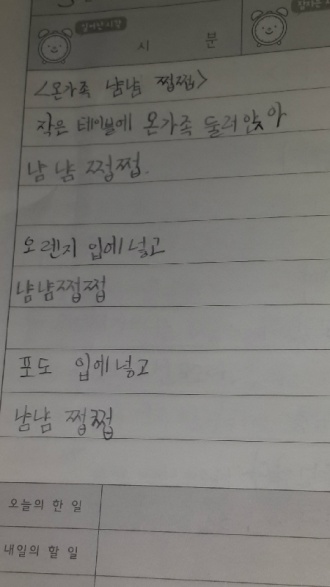 일어난 시각
시 분
<온가족 냠냠 쩝쩝>
작은 테이블에 온가족 둘러 앉아
냠 냠 쩝쩝.
오렌지 입에 넣고
냠냠쩝쩝
포도 입에 넣고
냠냠 쩝쩝
오늘의 한 일
내일의 할 일